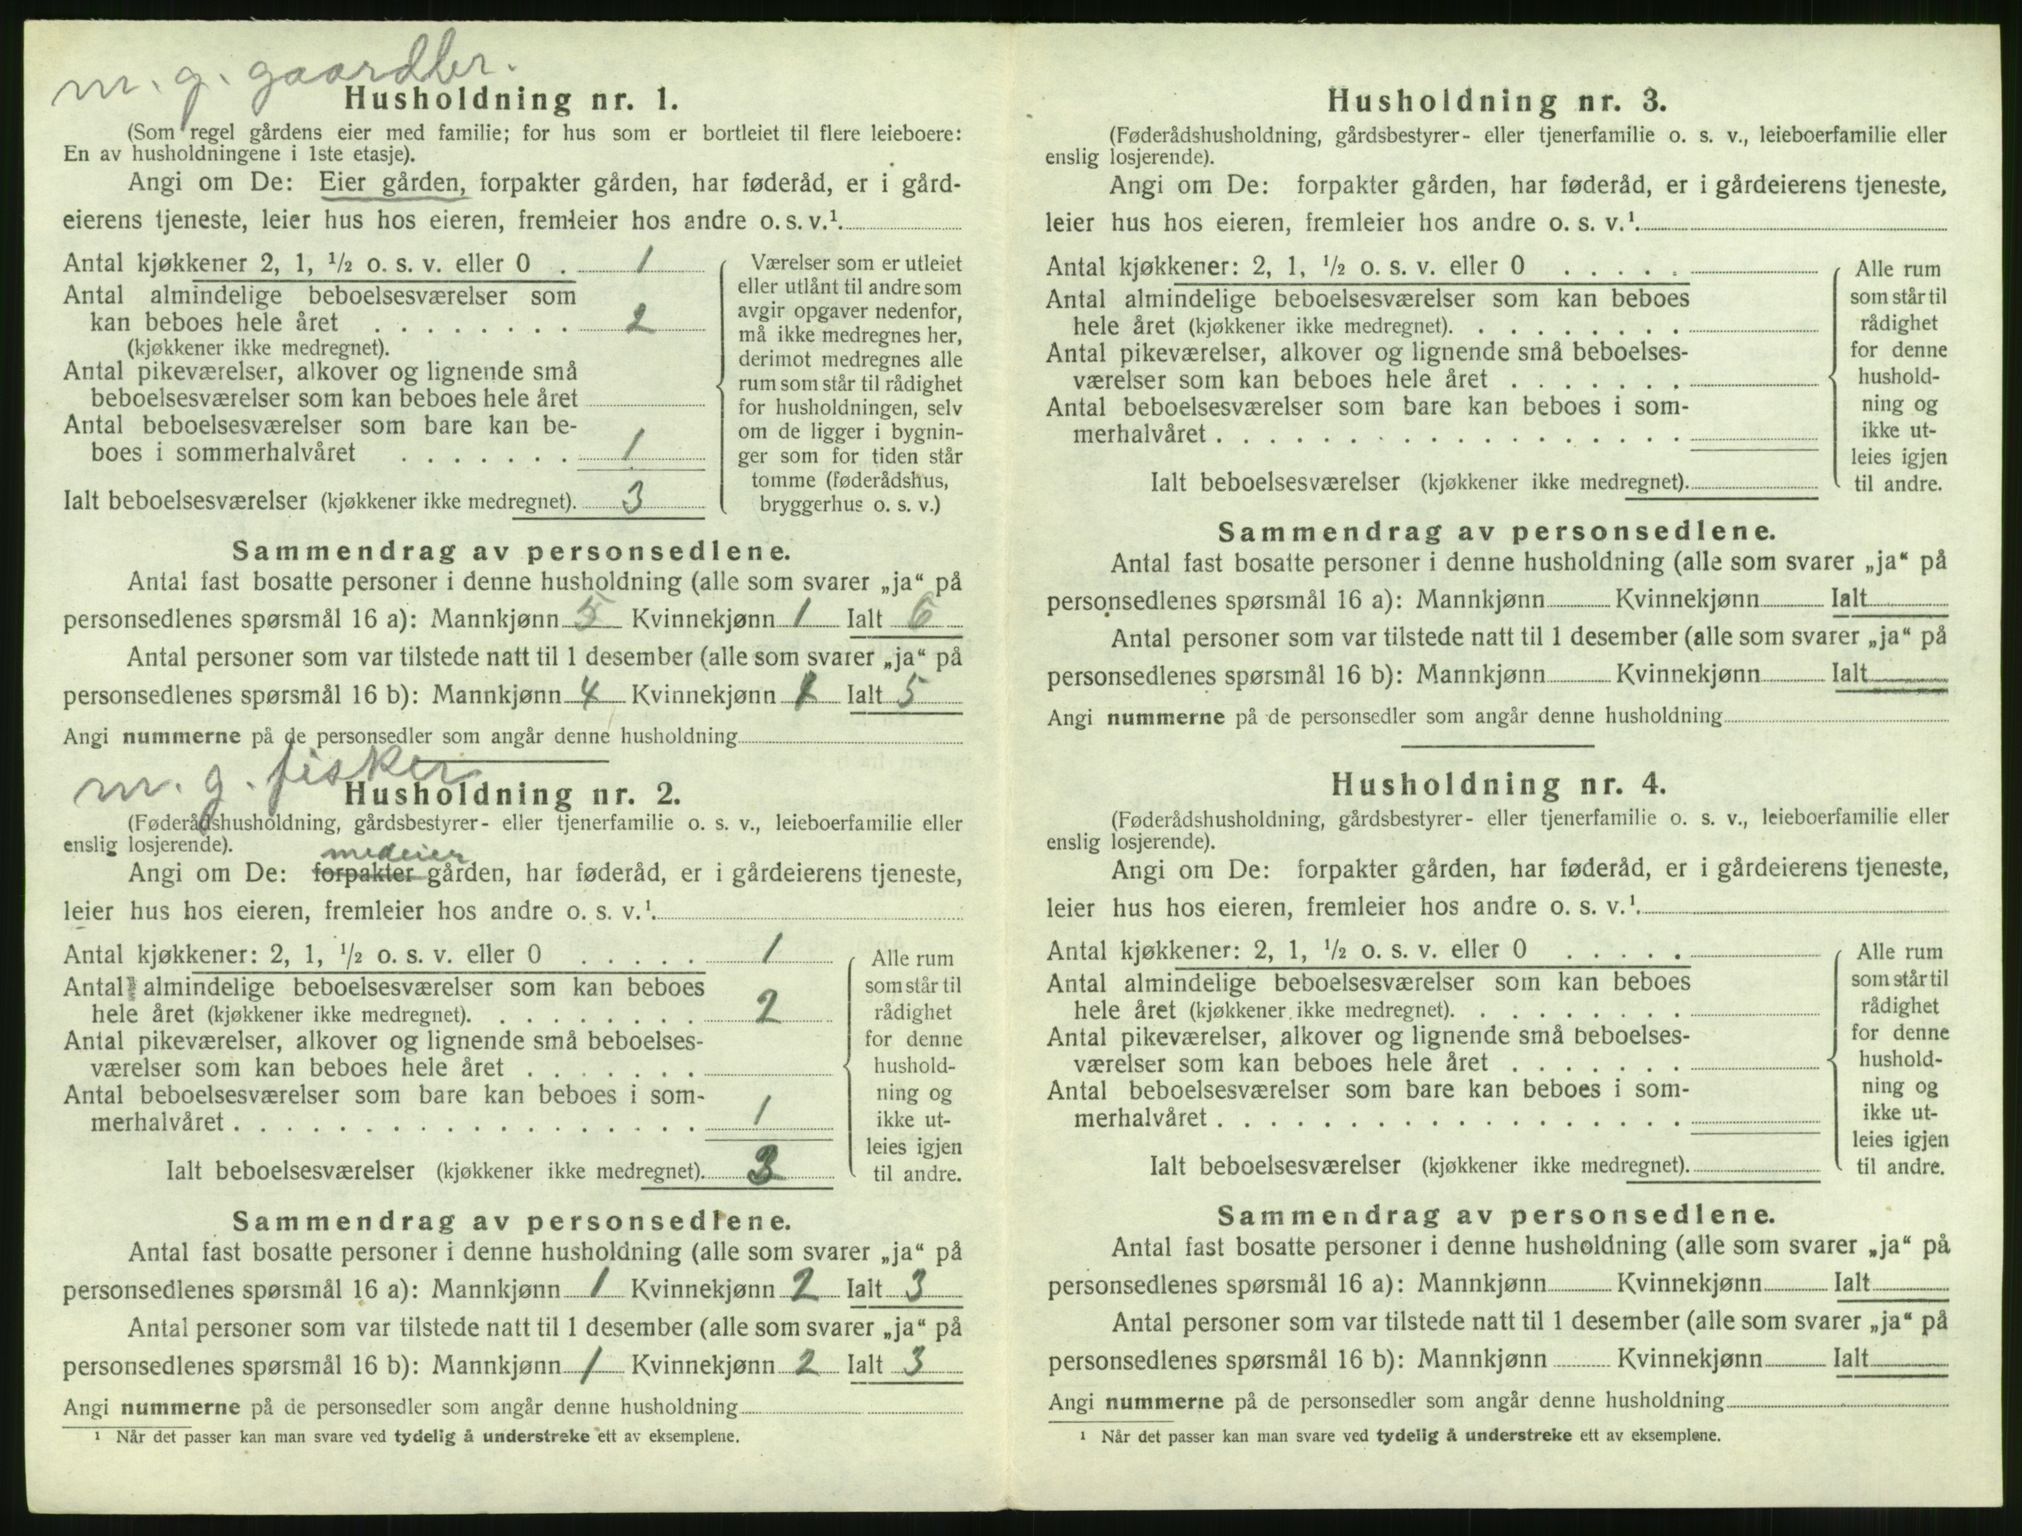 m. g. gaardbr.
Husholdning nr. 1.
(Som regel gårdens eier med familie; for hus som er bortleiet til flere leieboere:
En av husholdningene i 1ste etasje).
Angi om De: Eier gården, forpakter gården, har føderåd, er i gård-
eierens tjeneste, leier hus hos eieren, fremleier hos andre o. s. v.¹
Antal kjøkkener 2, 1, ½ o. s. v. eller 0 . 1
Antal almindelige beboelsesværelser som
kan beboes hele året . . . . . . . . 2
(kjøkkener ikke medregnet).
Antal pikeværelser, alkover og lignende små
beboelsesværelser som kan beboes hele året
Antal beboelsesværelser som bare kan be-
boes i sommerhalvåret . . . . . . . 1
Ialt beboelsesværelser (kjøkkener ikke medregnet). 3
Værelser som er utleiet
eller utlånt til andre som
avgir opgaver nedenfor,
må ikke medregnes her,
derimot medregnes alle
rum som står til rådighet
for husholdningen, selv
om de ligger i bygnin-
ger som for tiden står
tomme (føderådshus,
bryggerhus o. s. v.)
Sammendrag av personsedlene.
Antal fast bosatte personer i denne husholdning (alle som svarer „ja“ på
personsedlenes spørsmål 16 a): Mannkjønn 5 Kvinnekjønn 1 Ialt 6
Antal personer som var tilstede natt til 1 desember (alle som svarer „ja“ på
personsedlenes spørsmål 16 b): Mannkjønn 4 Kvinnekjønn 1 Ialt 5
Angi nummerne på de personsedler som angår denne husholdning
m. g. fisker
Husholdning nr. 2.
(Føderådshusholdning, gårdsbestyrer- eller tjenerfamilie o. s. v., leieboerfamilie eller
enslig losjerende).
medeier
Angi om De: forpakter gården, har føderåd, er i gårdeierens tjeneste,
leier hus hos eieren, fremleier hos andre o. s. v.¹
Antal kjøkkener: 2, 1, ½ o. s. v. eller 0 . . . . . 1
Antal almindelige beboelsesværelser som kan beboes
hele året (kjøkkener ikke medregnet). . . . . . . . . 2
Antal pikeværelser, alkover og lignende små beboelses-
værelser som kan beboes hele året . . . . . . .
Antal beboelsesværelser som bare kan beboes i som-
merhalvåret . . . . . . . . . . . . . . . . . . 1
Ialt beboelsesværelser (kjøkkener ikke medregnet). 3
Alle rum
som står til
rådighet
for denne
hushold-
ning og
ikke ut-
leies igjen
til andre.
Sammendrag av personsedlene.
Antal fast bosatte personer i denne husholdning (alle som svarer „ja“ på
personsedlenes spørsmål 16 a): Mannkjønn 1 Kvinnekjønn 2 Ialt 3
Antal personer som var tilstede natt til 1 desember (alle som svarer „ja“ på
personsedlenes spørsmål 16 b): Mannkjønn 1 Kvinnekjønn 2 Ialt 3
Angi nummerne på de personsedler som angår denne husholdning
¹ Når det passer kan man svare ved tydelig å understreke ett av eksemplene.
Husholdning nr. 3.
(Føderådshusholdning, gårdsbestyrer- eller tjenerfamilie o. s. v., leieboerfamilie eller
enslig losjerende).
Angi om De: forpakter gården, har føderåd, er i gårdeierens tjeneste,
leier hus hos eieren, fremleier hos andre o. s. v.¹
Antal kjøkkener: 2, 1, ½ o. s. v. eller 0 . . . . .
Antal almindelige beboelsesværelser som kan beboes
hele året (kjøkkener ikke medregnet). . . . . . . . .
Antal pikeværelser, alkover og lignende små beboelses-
værelser som kan beboes hele året . . . . . . .
Antal beboelsesværelser som bare kan beboes i som-
merhalvåret . . . . . . . . . . . . . . . . . .
Ialt beboelsesværelser (kjøkkener ikke medregnet).
Alle rum
som står til
rådighet
for denne
hushold-
ning og
ikke ut-
leies igjen
til andre.
Sammendrag av personsedlene.
Antal fast bosatte personer i denne husholdning (alle som svarer „ja“ på
personsedlenes spørsmål 16 a): Mannkjønn Kvinnekjønn Ialt
Antal personer som var tilstede natt til 1 desember (alle som svarer „ja“ på
personsedlenes spørsmål 16 b): Mannkjønn Kvinnekjønn Ialt
Angi nummerne på de personsedler som angår denne husholdning
Husholdning nr. 4.
(Føderådshusholdning, gårdsbestyrer- eller tjenerfamilie o. s. v., leieboerfamilie eller
enslig losjerende).
Angi om De: forpakter gården, har føderåd, er i gårdeierens tjeneste,
leier hus hos eieren, fremleier hos andre o. s. v.¹
Antal kjøkkener: 2, 1, ½ o. s. v. eller 0 . . . . .
Antal almindelige beboelsesværelser som kan beboes
hele året (kjøkkener ikke medregnet). . . . . . . . .
Antal pikeværelser, alkover og lignende små beboelses-
værelser som kan beboes hele året . . . . . . .
Antal beboelsesværelser som bare kan beboes i som-
merhalvåret . . . . . . . . . . . . . . . . . .
Ialt beboelsesværelser (kjøkkener ikke medregnet).
Alle rum
som står til
rådighet
for denne
hushold-
ning og
ikke ut-
leies igjen
til andre.
Sammendrag av personsedlene.
Antal fast bosatte personer i denne husholdning (alle som svarer „ja“ på
personsedlenes spørsmål 16 a): Mannkjønn Kvinnekjønn Ialt
Antal personer som var tilstede natt til 1 desember (alle som svarer „ja“ på
personsedlenes spørsmål 16 b): Mannkjønn Kvinnekjønn Ialt
Angi nummerne på de personsedler som angår denne husholdning
¹ Når det passer kan man svare ved tydelig å understreke ett av eksemplene.